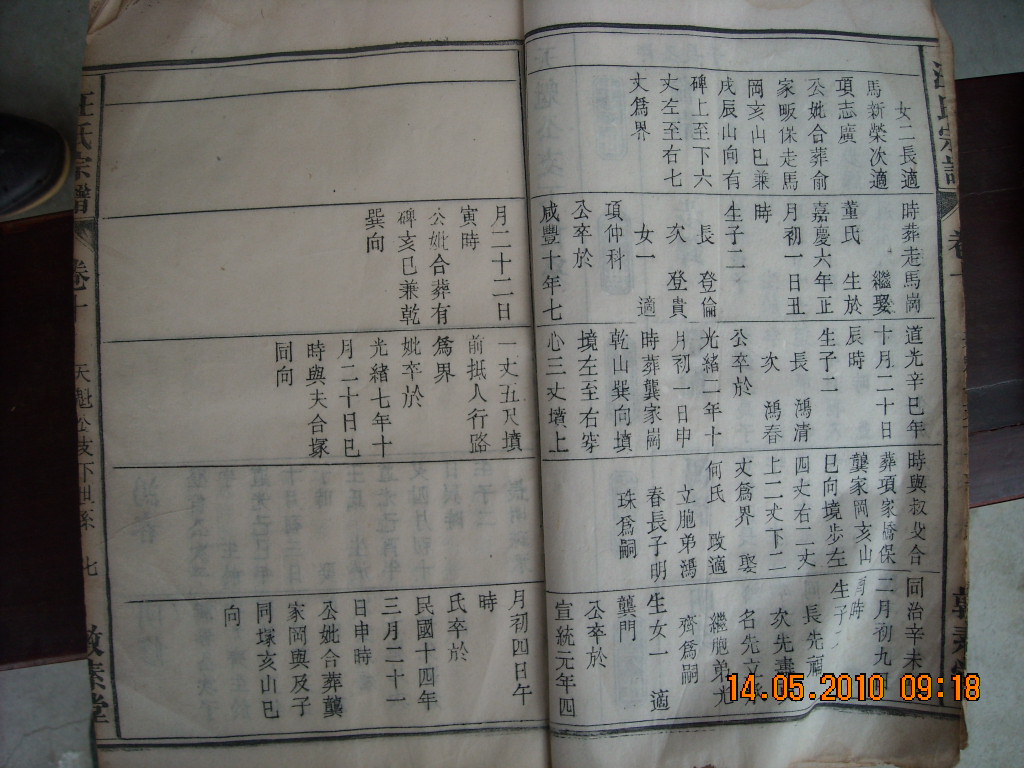 女二長適
馬新榮次適
項志廣
公妣合葬俞
家畈保走馬
岡亥山巳兼
戌辰山向有
碑上至下六
丈左至右七
丈爲界
時葬走馬崗
繼娶
董氏 生於
嘉慶六年正
月初一日丑
時
生子二
長 登倫
次 登貴
女一 適
項仲科
公卒於
咸豐十年七
月二十二日
寅時
公妣合葬有
碑亥巳兼乾
巽向
道光辛巳年
十月二十日
辰時
生子二
長 鴻清
次 鴻春
公卒於
光緒二年十
月初一日申
時葬龔家崗
乾山巽向墳
境左至右穿
心三丈墳上
一丈五尺墳
前抵人行路
爲界
妣卒於
光緒七年十
月二十日巳
時與夫合塚
同向
時與叔父合
葬項家橋保
龔家岡亥山
巳向境步左
四丈右二丈
上二丈下二
丈爲界 娶
何氏 改適
立胞弟鴻
春長子明
珠爲嗣
同治辛未
二月初九
時
生子
長先
次先
名先立
繼胞弟光
齊爲嗣
生女一 適
龔門
公卒於
宣統元年四
月初四日午
時
氏卒於
民國十四年
三月二十一
日申時
公妣合葬龔
家岡與及子
同塚亥山巳
向
汪氏宗譜
卷十
天魁公支下世系
七
敦素堂
14.05.2010 09:18